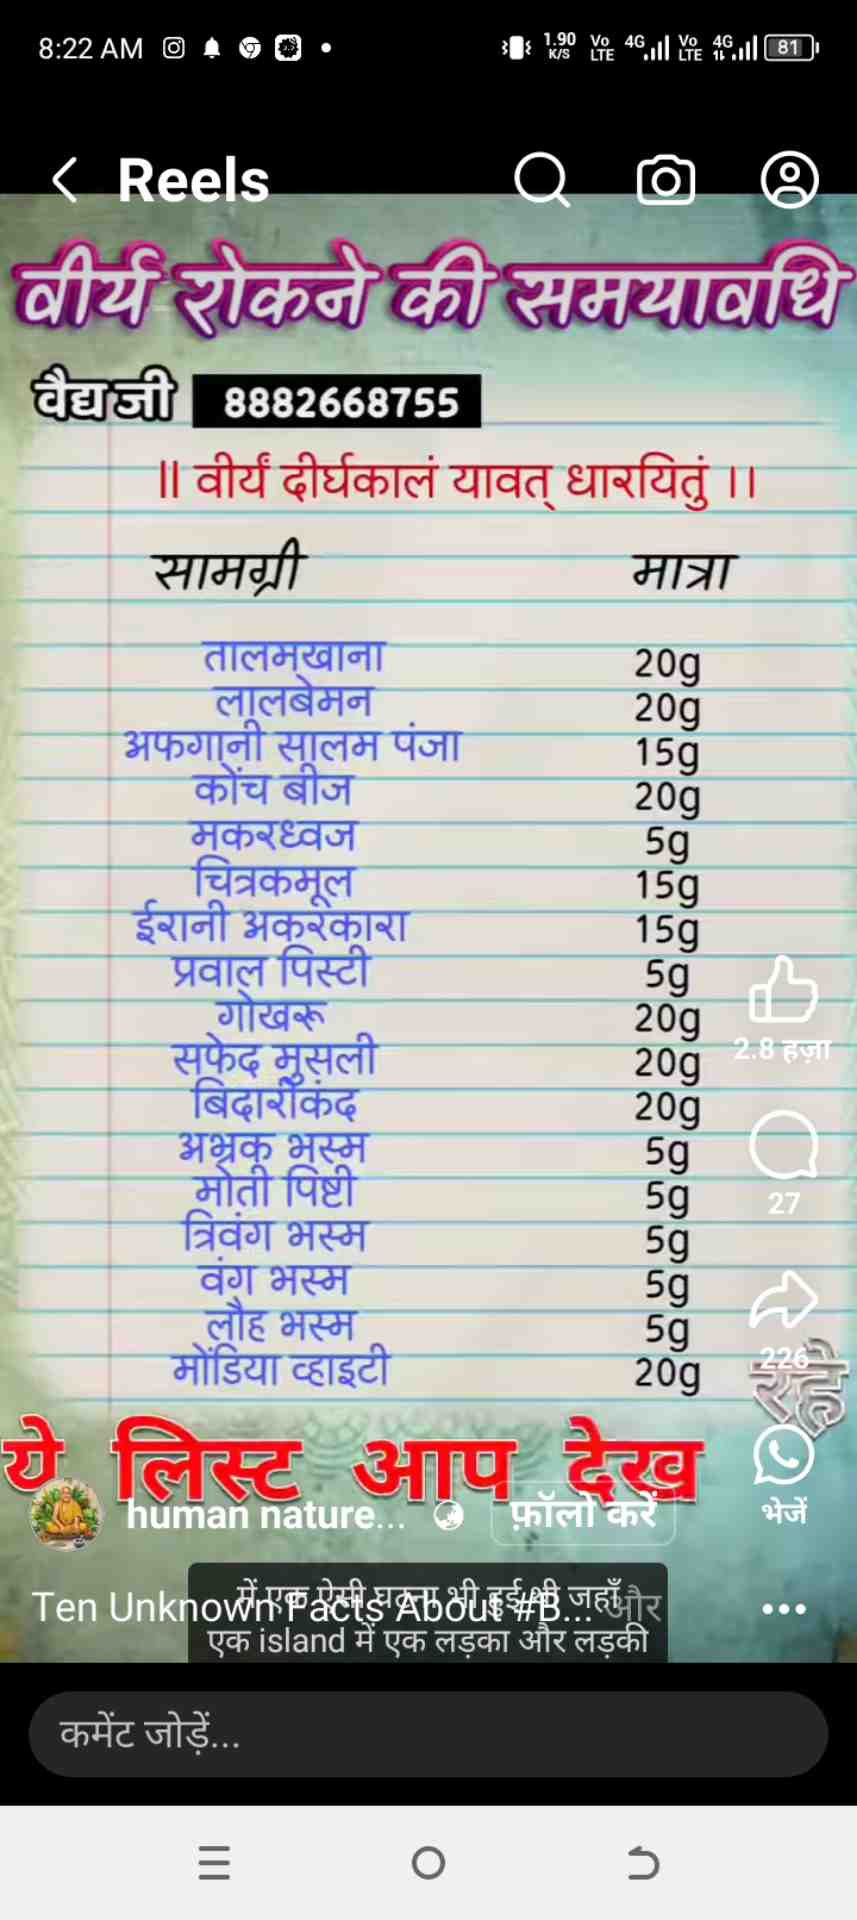 8:22 AM
1.90 K/S Vo LTE 4G Vo LTE 4G 81
Reels
वीर्य रोकने की समयावधि
वैद्य जी 8882668755
॥ वीर्यं दीर्घकालं यावत् धारयितुं ।।
सामग्री मात्रा
तालमखाना 20g
लालबेमन 20g
अफगानी सालम पंजा 15g
कोंच बीज 20g
मकरध्वज 5g
चित्रकमूल 15g
ईरानी अकरकारा 15g
प्रवाल पिस्टी 5g
गोखरू 20g
सफेद मुसली 20g
बिदारीकंद 20g
अभ्रक भस्म 5g
मोती पिष्टी 5g
त्रिवंग भस्म 5g
वंग भस्म 5g
लौह भस्म 5g
मोंडिया व्हाइटी 20g
2.8 हज़ा
27
226
रहे
ये लिस्ट आप देख
human nature... फ़ॉलो करें
भेजें
Ten Unknown Facts About #B...
में एक ऐसी घटना भी हुई थी जहाँ और
एक island में एक लड़का और लड़की
कमेंट जोड़ें...